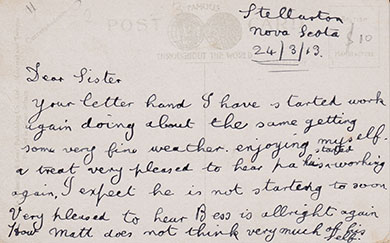 Stellarton
Nova Scota
24/3/13.
Dear Sister
Your letter hand I have started work
again doing about the same getting
some very fine weather. enjoying myself.
a treat very pleased to hear pa has started working
again, I expect he is not starting to soon
Very pleased to hear Bess is allright again
How Matt does not think very much of his
self.